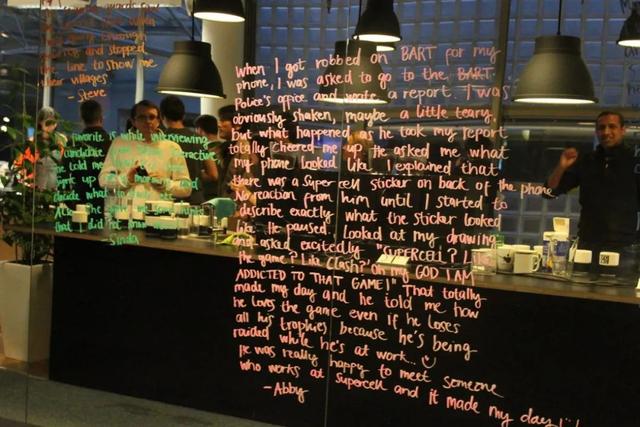 and stopped
line to show me
their villages.
Steve
When I got robbed on BART for my
phone, I was asked to go to the BART
Police's office and write a report. I was
obviously shaken, maybe a little teary,
but what happened, as he took my report
totally cheered me up. He asked me what
my phone looked like. I explained that
there was a Supercell sticker on back of the phone
No reaction from him until I started to
describe exactly what the sticker looked
like. He paused, looked at my drawing
and asked excitedly "SUPERCELL? Like
the game? Like Clash? Oh my GOD I AM
ADDICTED TO THAT GAME!" That totally
made my day and he told me how
he loves the game even if he loses
all his trophies because he's being
raided while he's at work...
He was really happy to meet someone
who works at Supercell and it made my day!
- Abby
favorite is while interviewing
candidate
he told me
up
decide what
that did not
- Linda